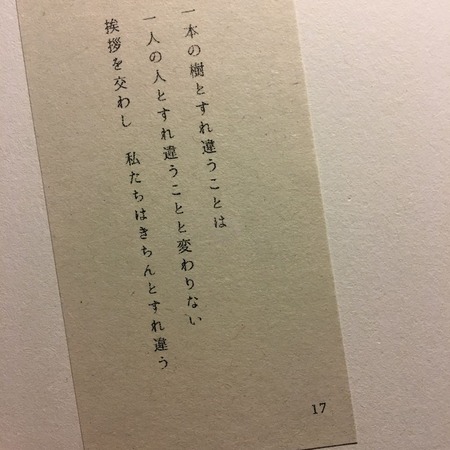 一本の樹とすれ違うことは
一人の人とすれ違うことと変わりない
挨拶を交わし　私たちはきちんとすれ違う
17